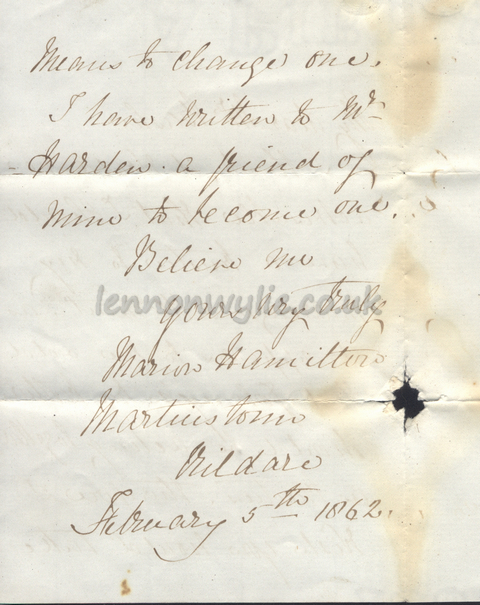 Means to change one.
I have written to Mr
Harden a friend of
mine to become one.
Believe me
lennonwylie.co.uk
yours very truly
Marion Hamilton
Martinstown
Kildare
February 5th 1862.